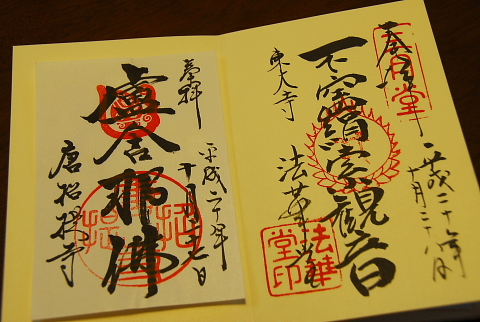 奉拝
不空羂索観音
東大寺
法華堂
平成二十年
十月二十八日
法華
堂印
奉拝
盧舎那佛
唐招提寺
平成二十年
招
提